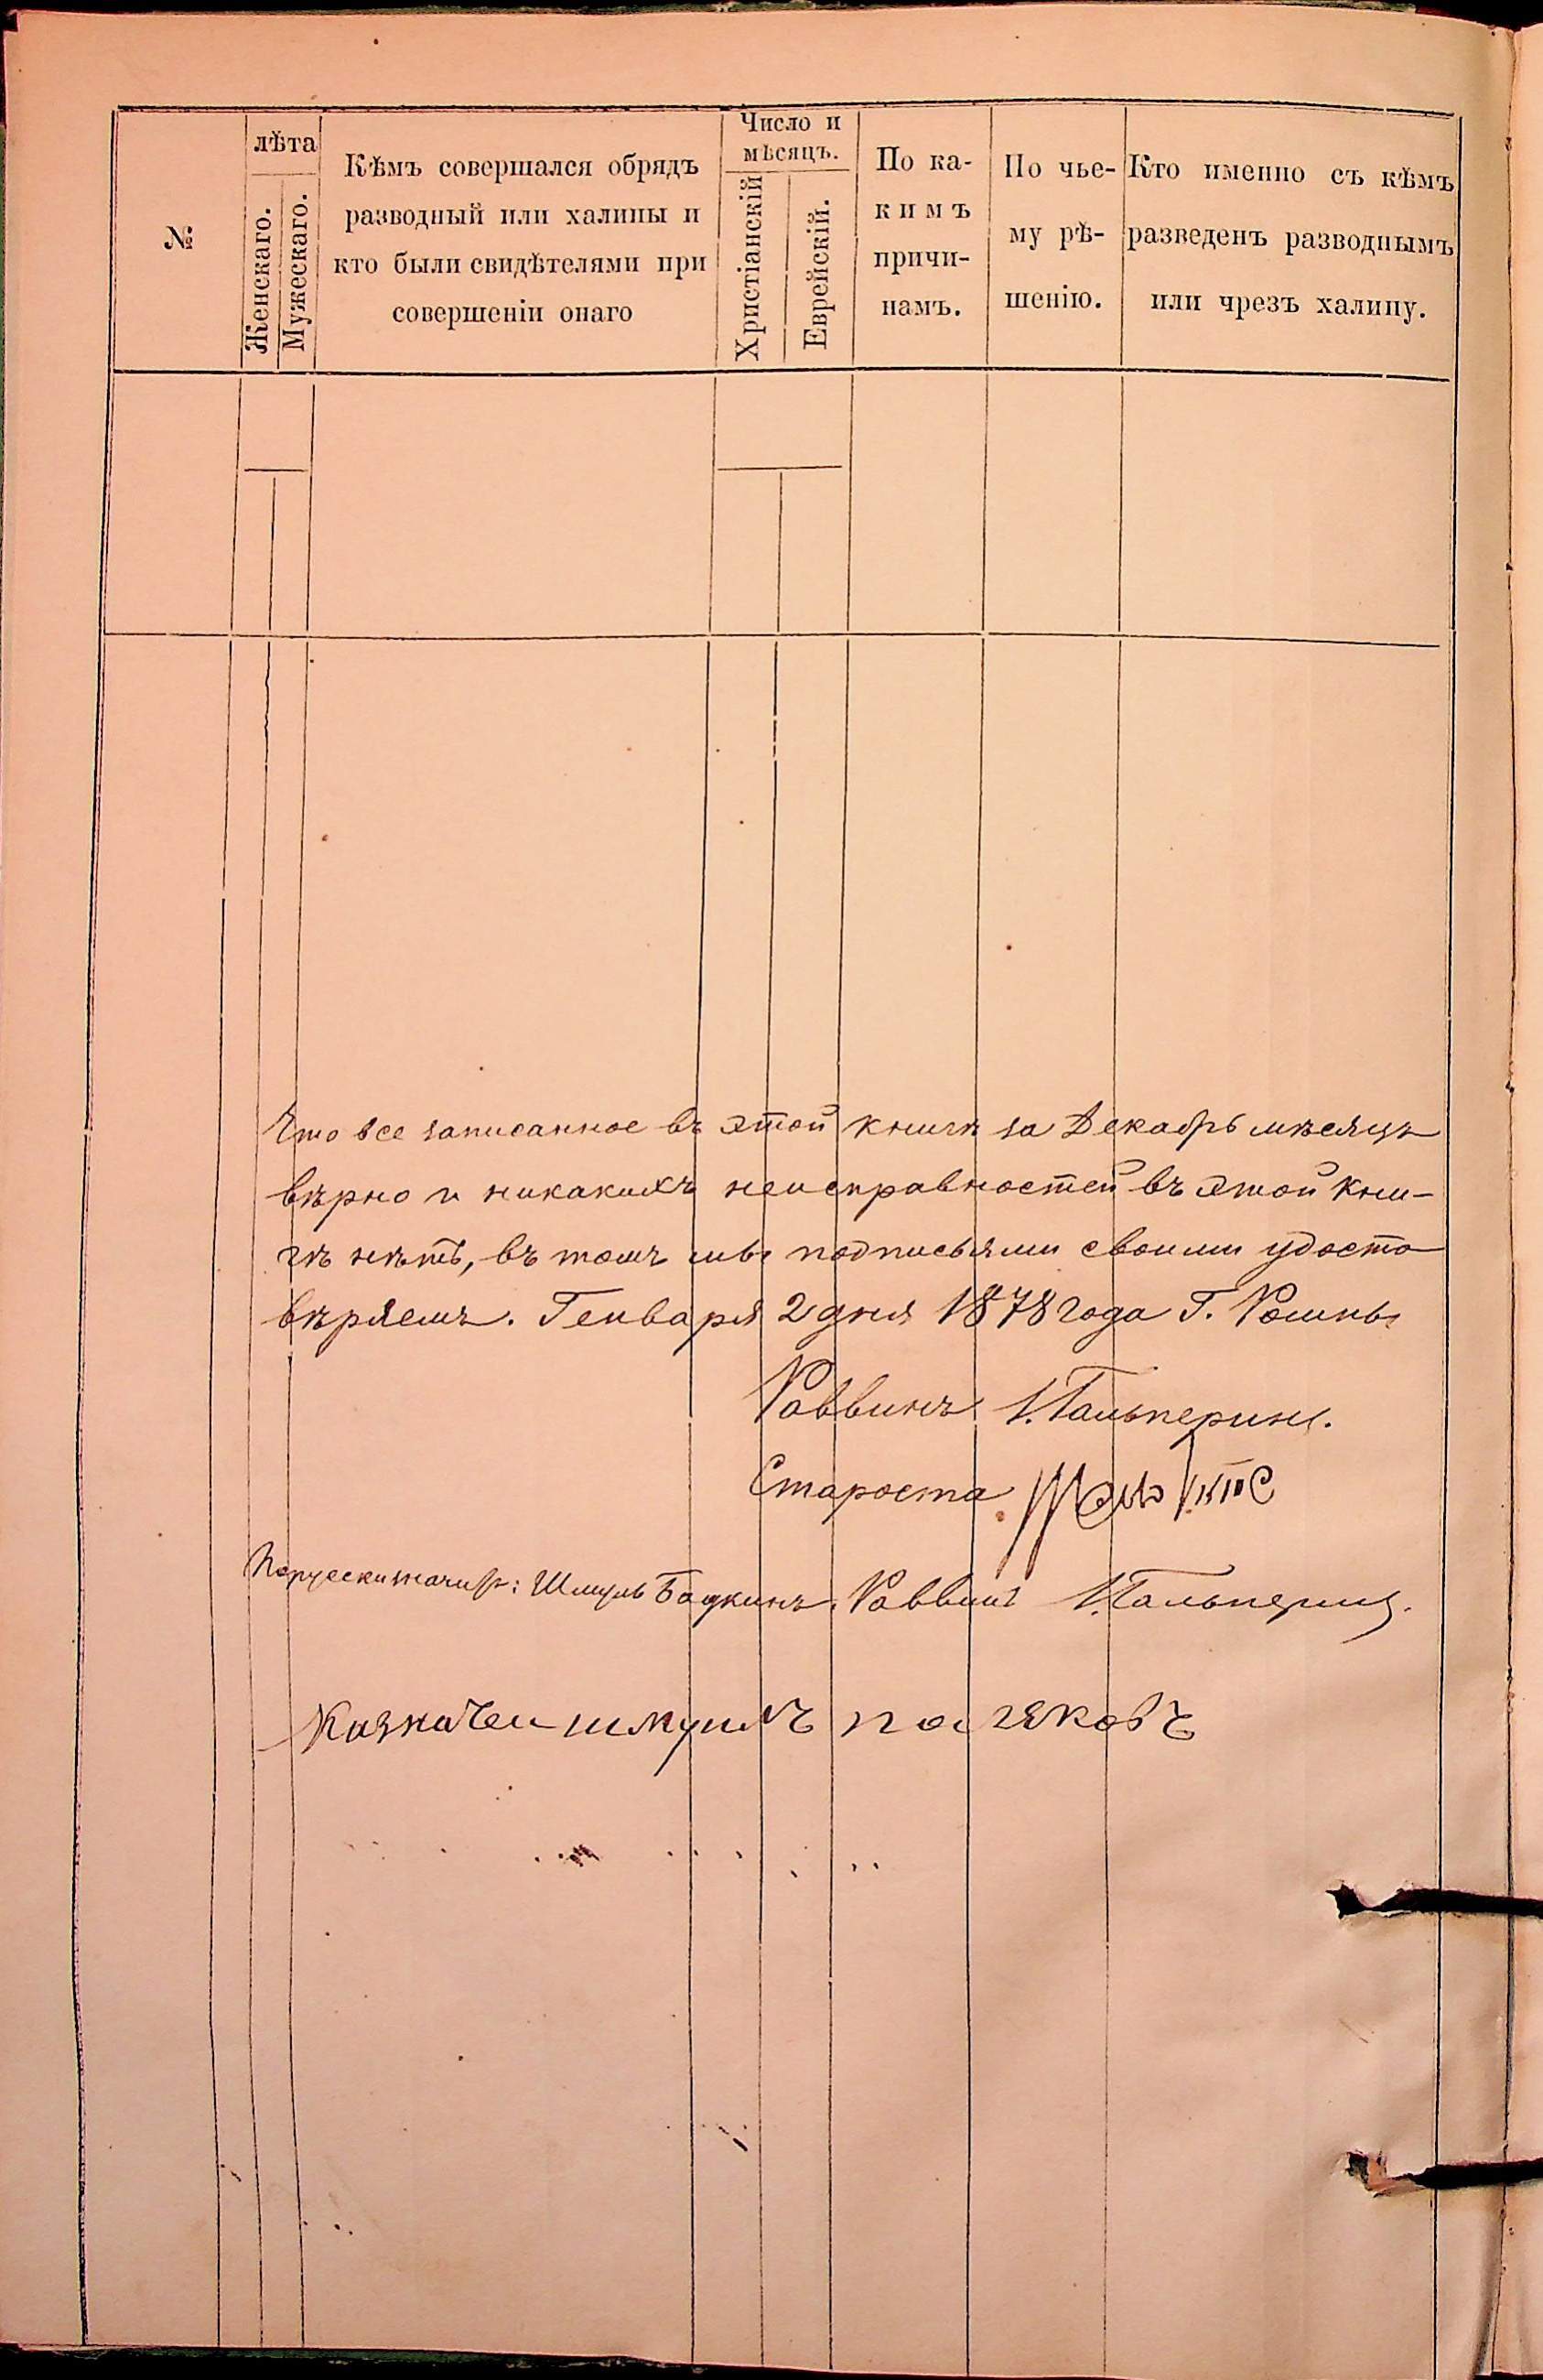 №
лѣта
Женскаго.
Мужескаго.
Кѣмъ совершался обрядъ
разводный или халицы и
кто были свидѣтелями при
совершеніи онаго
Число и
мѣсяцъ.
Христіанскій
Еврейскій.
По ка-
кимъ
причи-
намъ.
По чье-
му рѣ-
шенію.
Кто именно съ кѣмъ
разведенъ разводнымъ
или чрезъ халицу.
Что все записанное въ этой книгѣ за Декабрь мѣсяцъ
вѣрно и никакихъ неисправностей въ этой кни-
гѣ нѣтъ, въ томъ мы подписьями своими удосто
вѣряемъ. Генваря 2 дня 1878 года Г. Ромны
Раввинъ И. Гальперинъ.
Староста
Порусски значитъ: Шмуль Бадкинъ. Раввинъ И. Гальперинъ.
Казначеи шмуилъ поляковъ